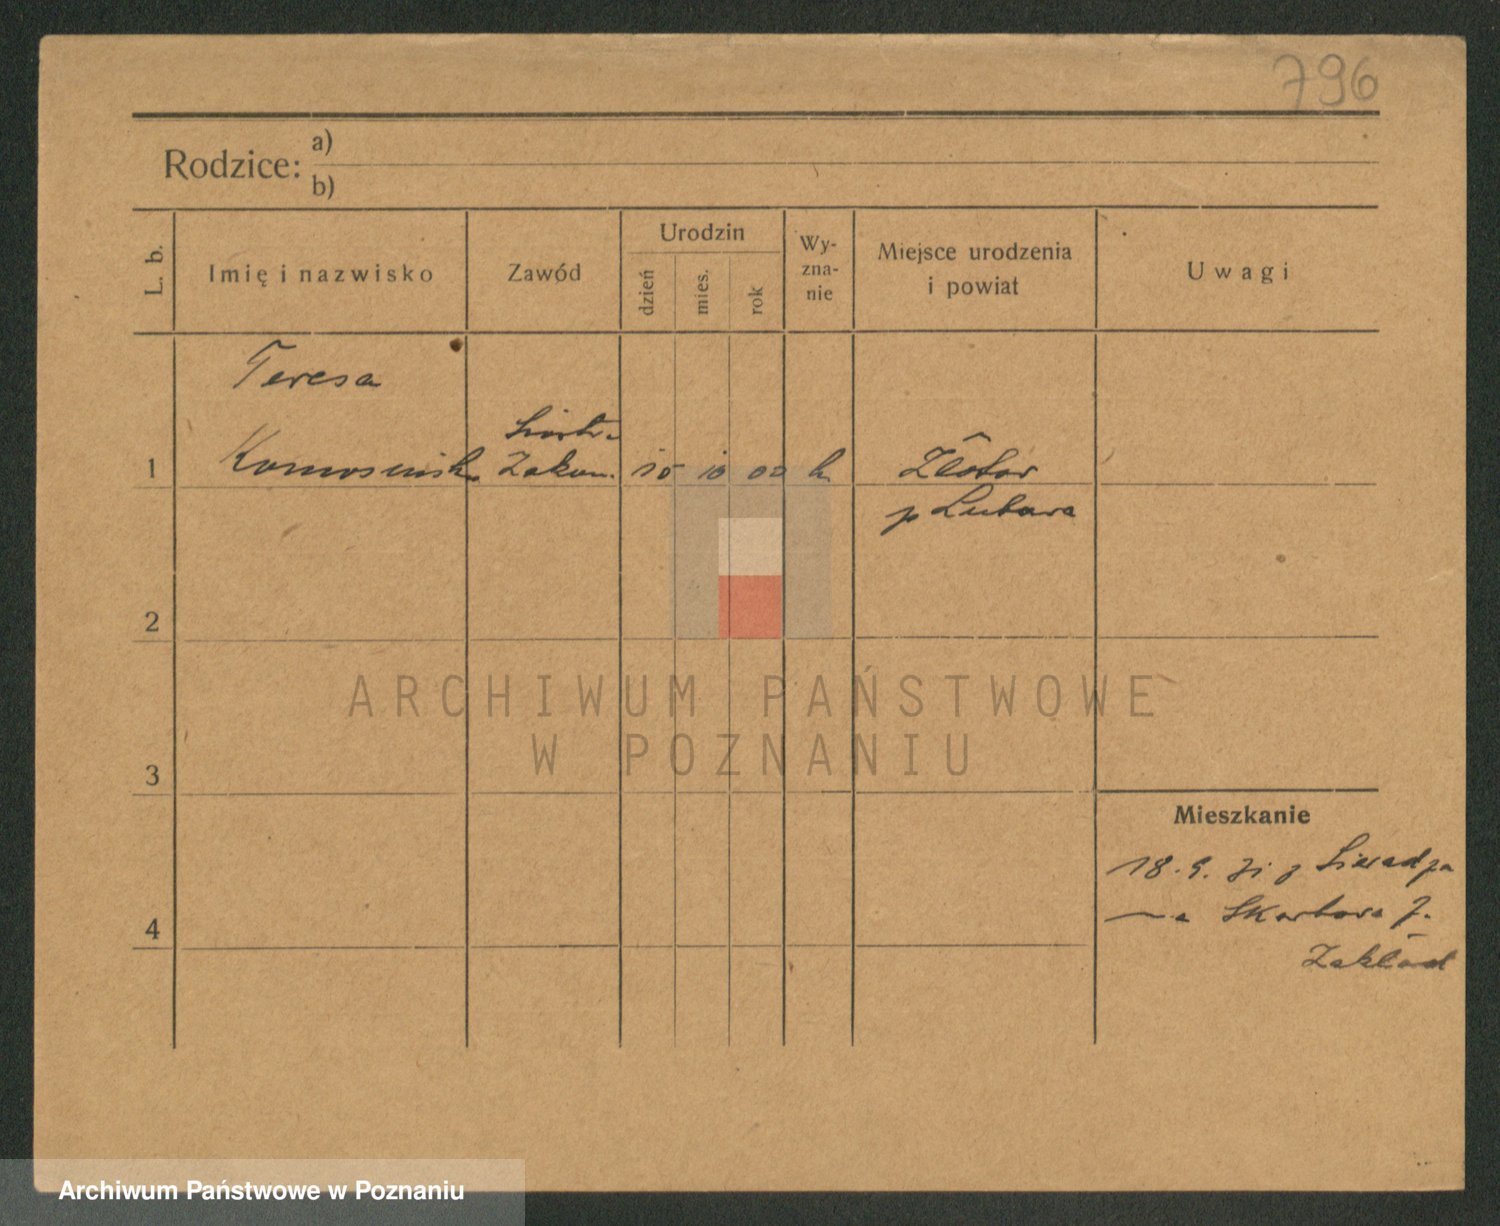 796
Rodzice: a)
b)
L. b.
Imię i nazwisko
Zawód
Urodzin
dzień
mies.
rok
Wy-
zna-
nie
Miejsce urodzenia
i powiat
Uwagi
Teresa
Siostr.
1
Zakon.
10
00
k
p Lubawa
2
3
4
Mieszkanie
18. 9.
Skarbowa
Zakład
ARCHIWUM PAŃSTWOWE
W POZNANIU
Archiwum Państwowe w Poznaniu